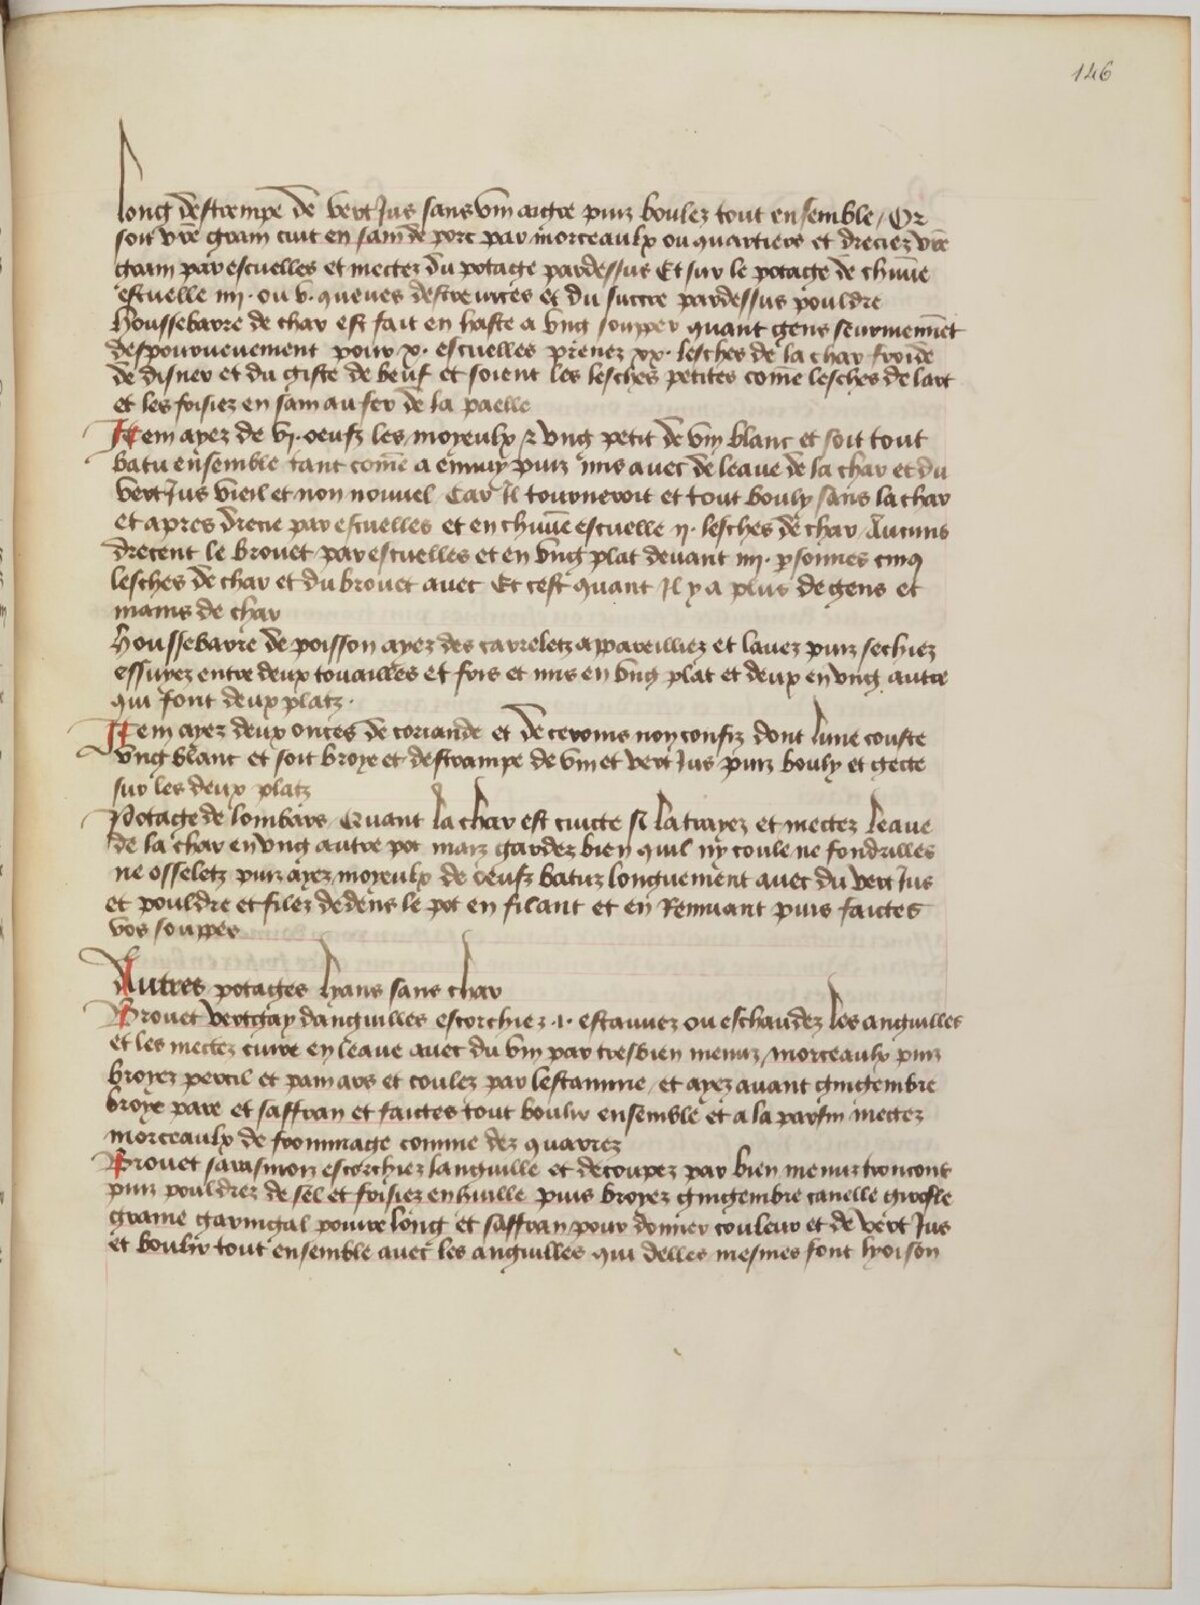 146
long destrempe de vertjus sans vin aigre puiz boulez tout ensemble / Or
soit vr̄e grain cuit en sain de porc par morceaulx ou quartiers et dreciez vr̄e
grain par escuelles et mectez du potage pardessus Et sur le potage de chūne
escuelle iiij. ou v. queues descreuices et du succre pardessus pouldre
Houssebarre de char est fait en haste a ung soupper quant gens seurviennēt
despourveuement pour x. escuelles prenez xx. lesches de la char froide
de disner et du giste de beuf et soient les lesches petites com̄e lesches de lart
et les frisiez en sain au fer de la paelle
Item ayez de vj. oeufz les moyeulx & ung petit de vin blanc et soit tout
batu ensemble tant com̄e a ennuy puiz mis avec de leaue de la char et du
vertjus vieil et non nouvel Car Il tourneroit et tout bouly sans la char
et apres drecie par escuelles et en chūne escuelle ij. lesches de char / Aucuns
drecent le brouet par escuelles et en ung plat devant iiij. p̄sonnes cinq
lesches de char et du brouet avec Et cest quant Il y a plus de gens et
mains de char
Houssebarre de poisson ayez des carreletz appareilliez et lavez puiz sechiez
essuyez entre deux touailles et fris et mis en ung plat et deux en ung autre
qui sont deux platz.
Item ayez deux onces de coriande et de cervoins non confiz dont lune couste
ung blanc et soit broye et destrampe de vin et vertjus puiz bouly et gecte
sur les deux platz
Potage de lombars Quant la char est cuicte si la trayez et mectez leaue
de la char en ung autre pot maiz gardez bien quil ny coule ne fondrilles
ne osseletz puiz ayez moyeulx de oeufz batuz longuement avec du vertjus
et pouldre et filez dedens le pot en filant et en Remuant puis faictes
vos souppes
Autres potages lyans sans char
Brouet vertgay danguilles escorchiez .i. estauvez ou eschaudez les anguilles
et les mectez cuire en leaue avec du vin par tresbien menuz morceaulx puiz
broyez percil et pain ars et coulez par lestamine et ayez avant gingembre
broye pare et saffran et faictes tout boulir ensemble et a la parfin mectez
morceaulx de frommage comme dez quarrez
Brouet sarasinoiz escorchiez languille et decoupez par bien menuz troncont
puiz pouldrez de sel et frisiez en huille puis broyez gingembre canelle girofle
graine garingal poivre long et saffran pour donner couleur et de vertjus
et boulir tout ensemble avec les anguilles qui delles mesmes font lyoison